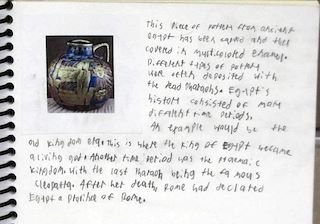 This Piece of pottery from ancient
Egypt has been carved and then
covered in multicolored Enamel.
Different types of pottery
were often deposited with
the dead Pharaohs. Egypt's
history consisted of many
different time periods.
An example would be the
old kingdom era. This is where the king of Egypt became
a living god. Another time Period was the
Kingdom. With the last Pharaoh being the famous
Cleopatra. After her death, Rome had declared
Egypt a province of Rome.